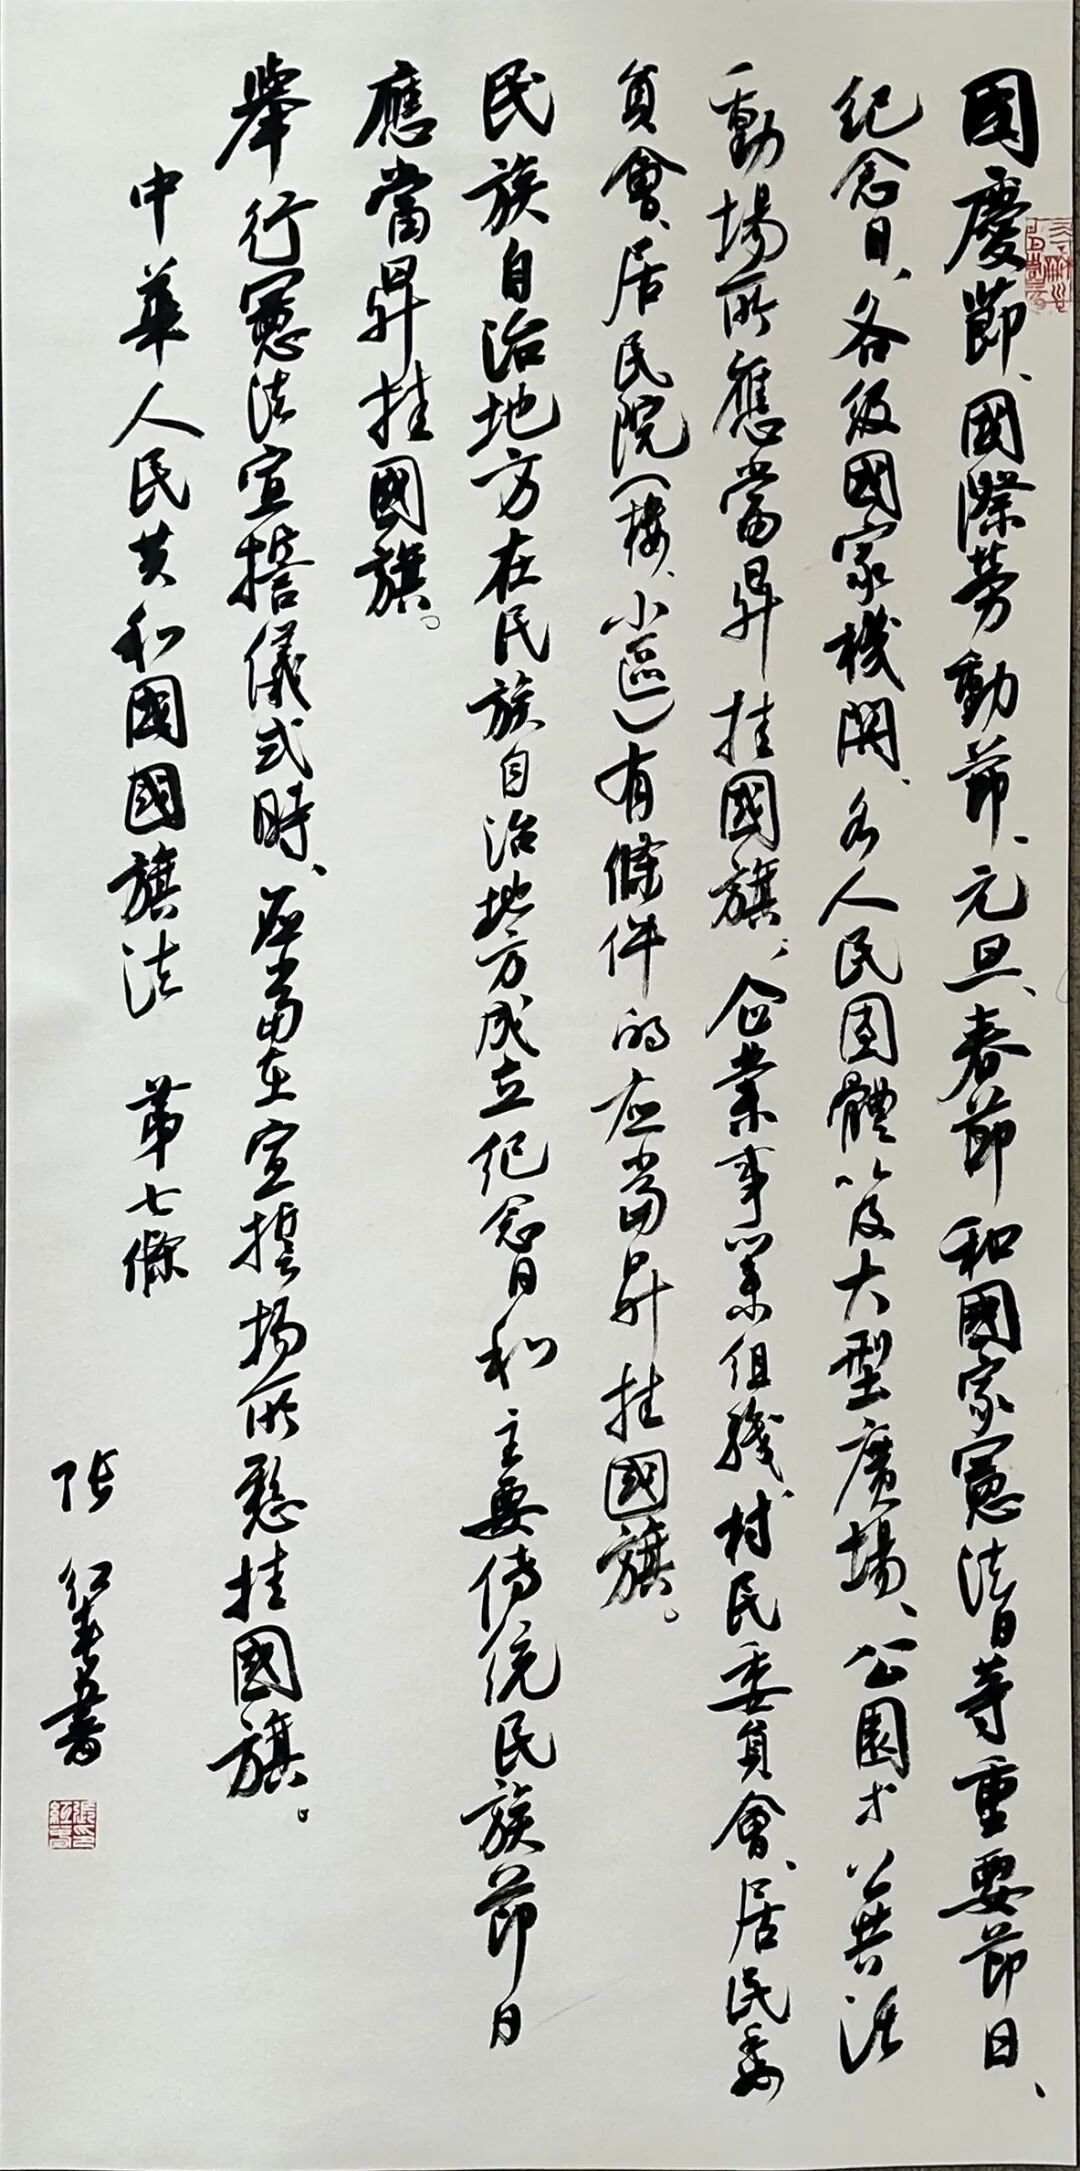 國慶節、國際勞動節、元旦、春節和國家憲法日等重要節日、
紀念日、各級國家機關、各人民團體以及大型廣場、公園等公共活
動場所應當昇挂國旗、企業事業組織、村民委員會、居民委
員會、居民院（樓、小區）有條件的应當昇挂國旗。
民族自治地方在民族自治地方成立紀念日和主要传统民族節日
應當昇挂國旗。
舉行憲法宣誓儀式時、应當在宣誓场所懸挂國旗。
中華人民共和國國旗法 第七條
张紅春書